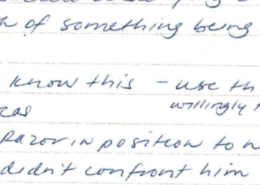 of something being
know this - use th
willingly t
cas
razor in position to
didn't confront him